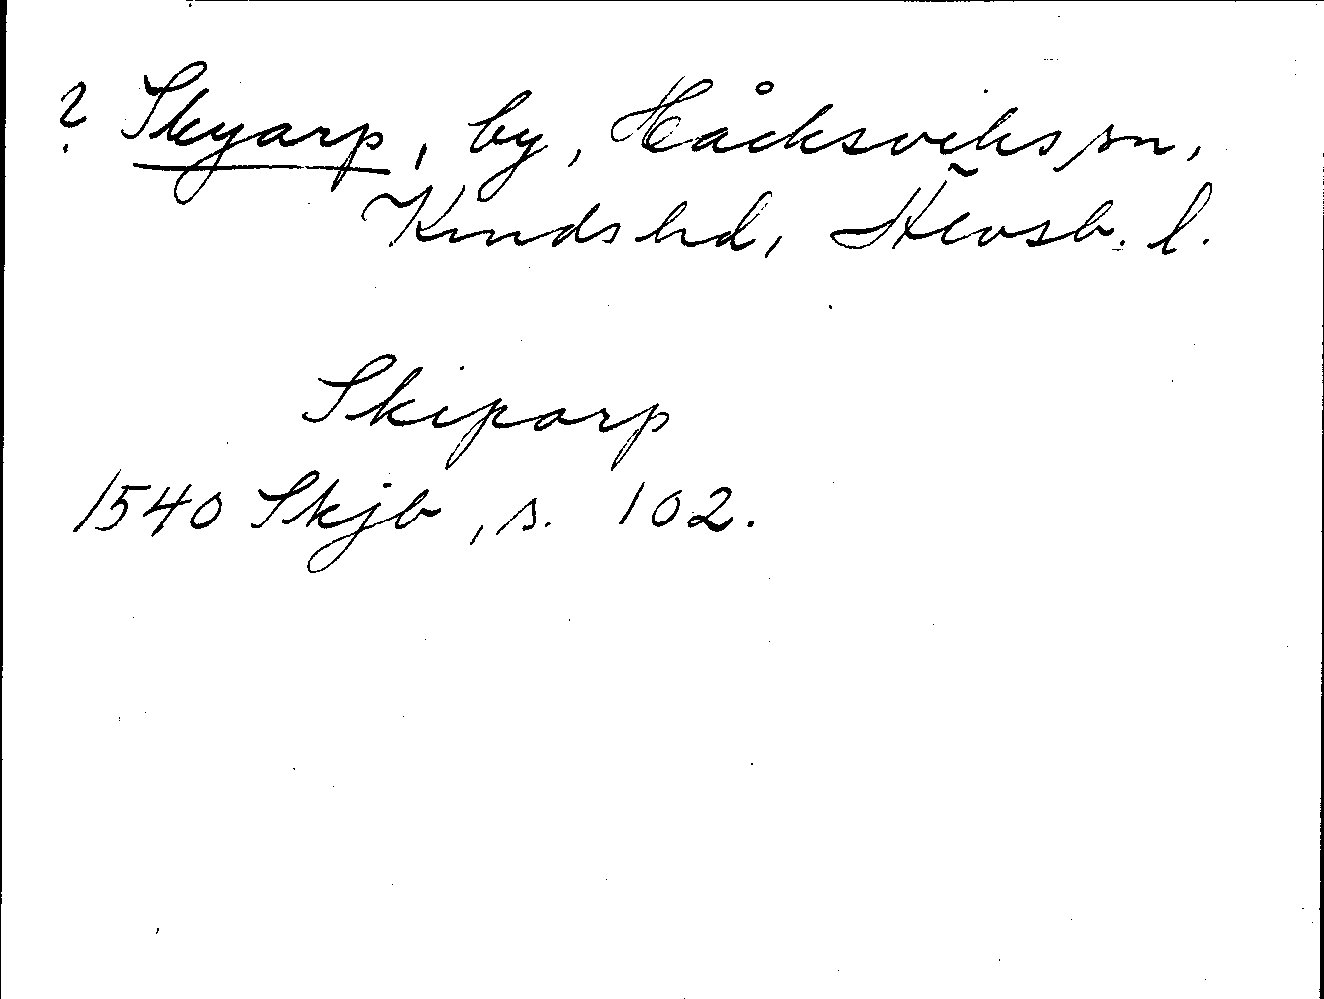 ? Skyarp, by, Håcksviks sn,
Kinds hd, Älvsb. l.
Skiparp
1540 Skjb, s. 102.